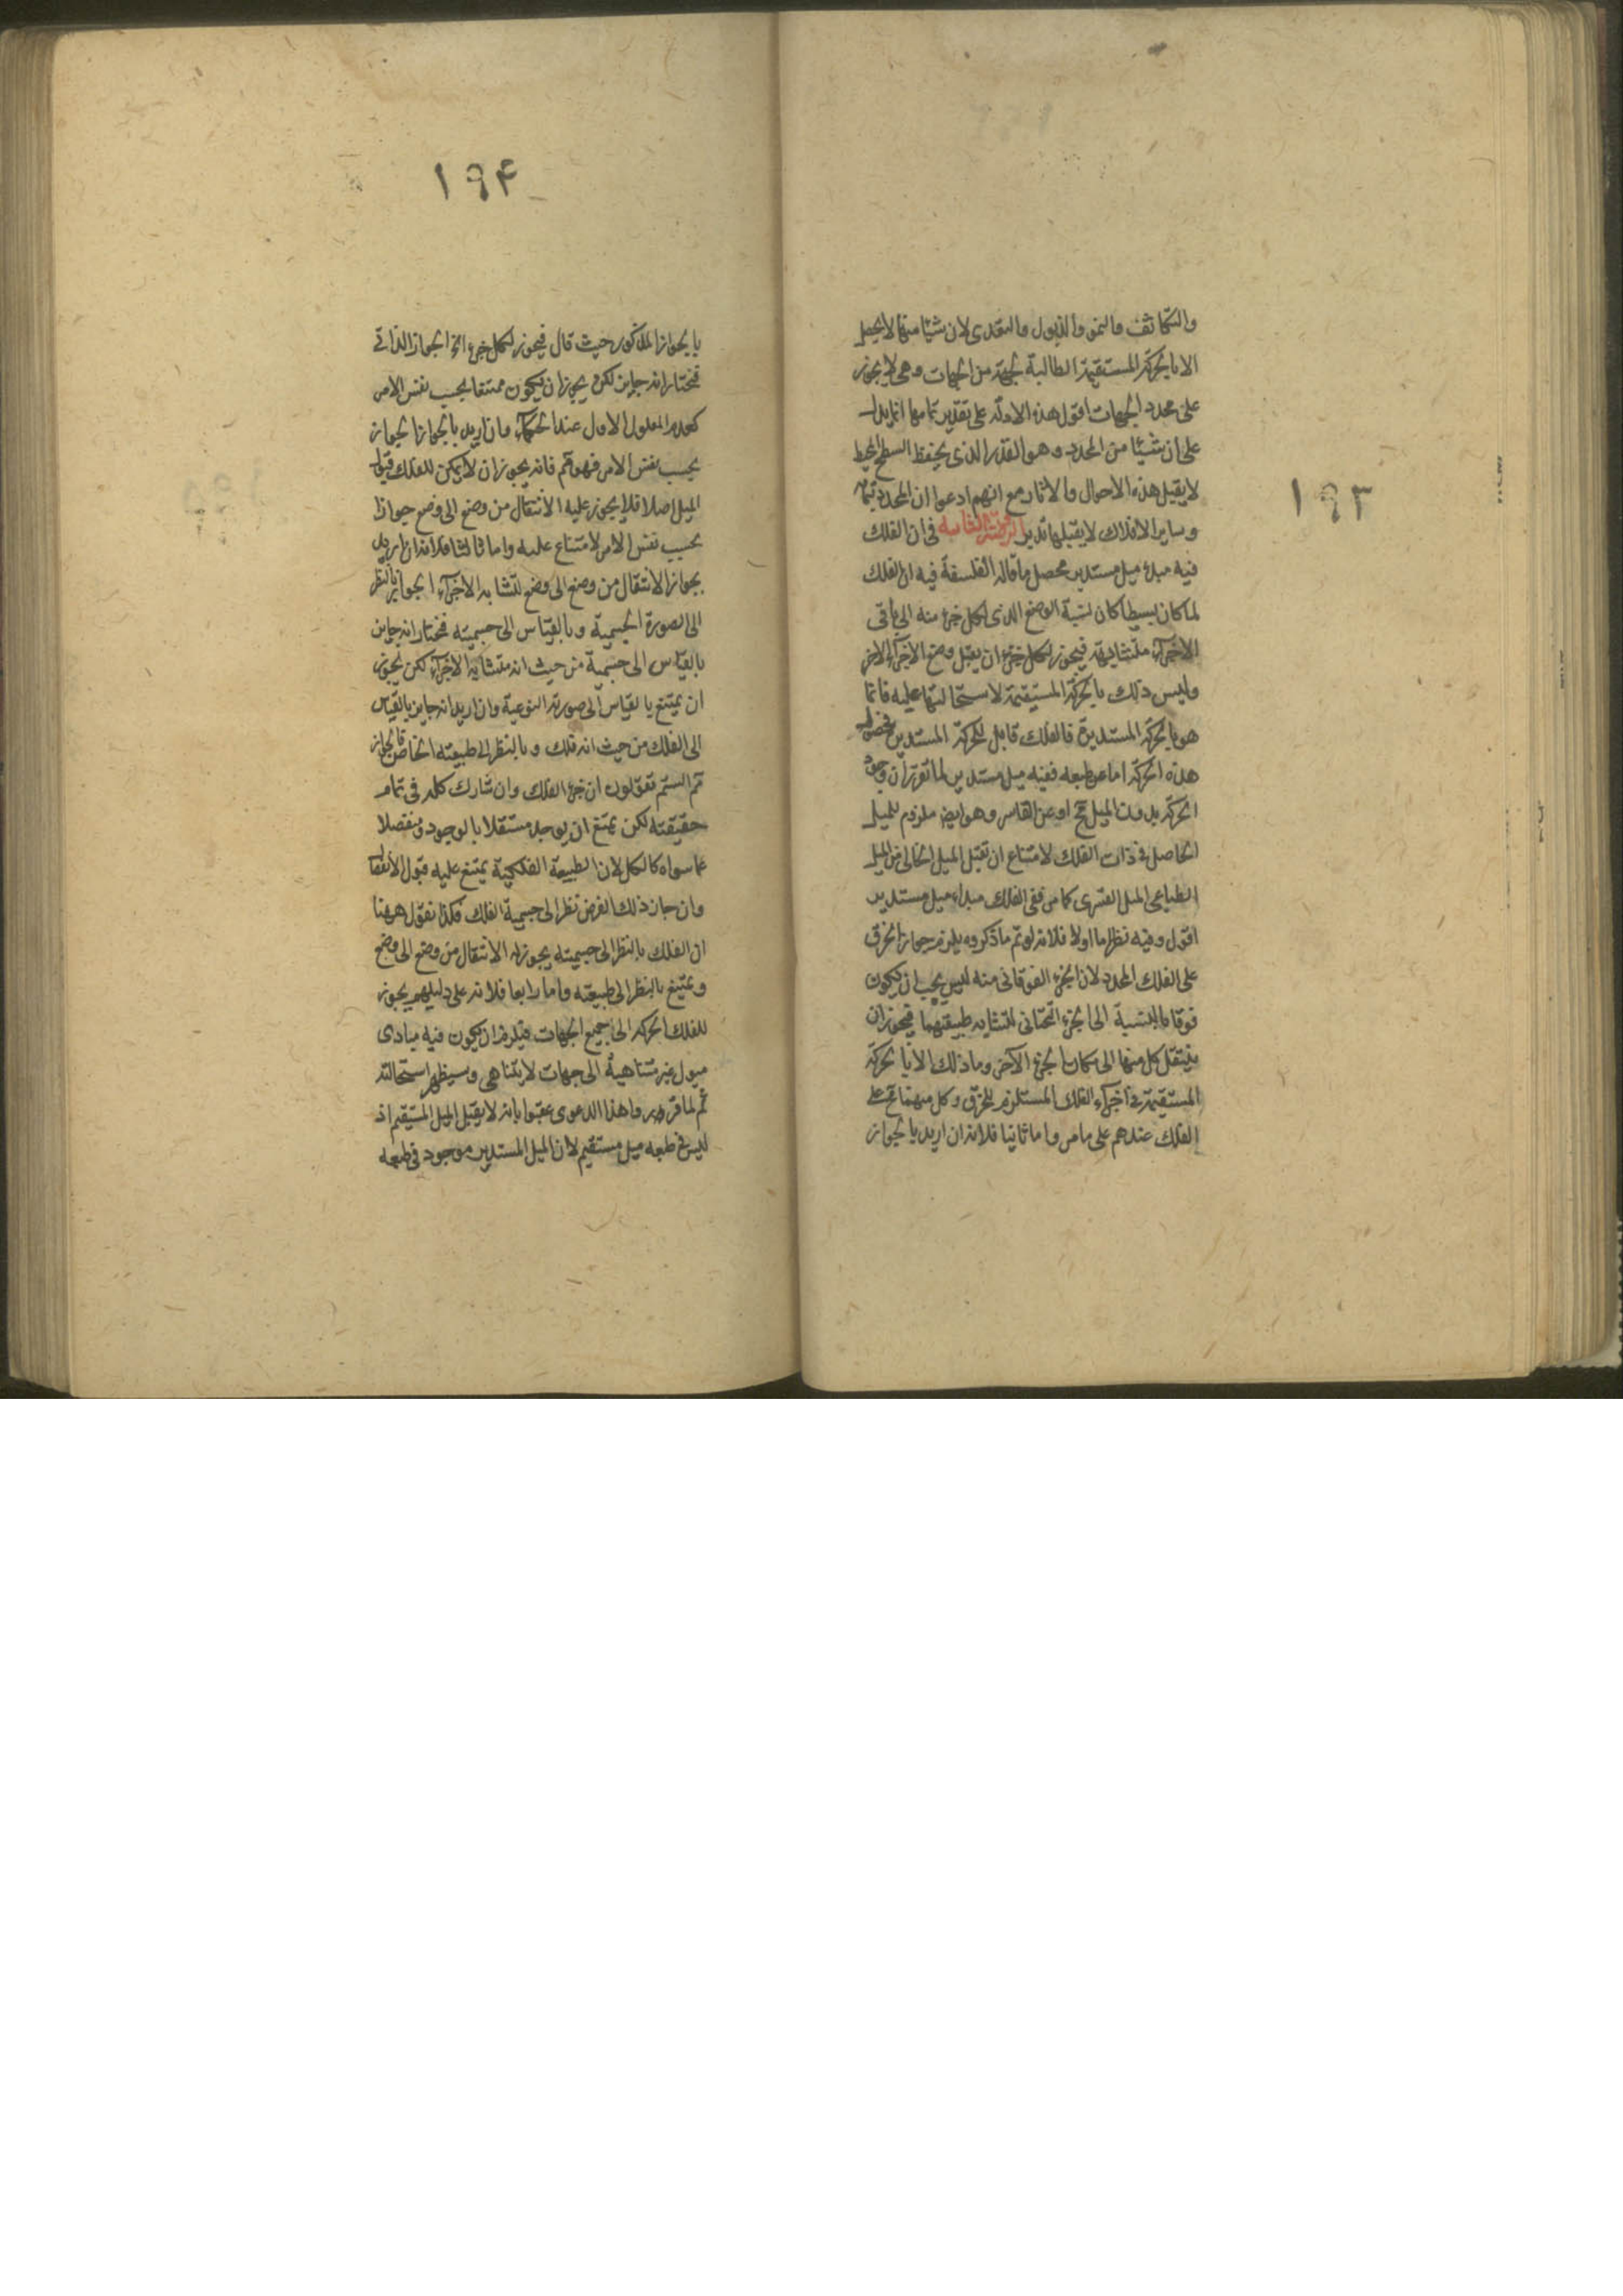 ١٩٣
والتكاثف والنمو والذبول والتغذى لان شيئا منها لا يحصل
الا بالحركة المستقيمة الطالبة لجهة من الجهات وهى لا يجوز
على محدد الجهات اقول هذه الادلة على تقدير تمامها انما يدل
على ان شيئا من المحدد وهو القدر الذى يحفظ السطح المحيط
لا يقبل هذه الاحوال والاثار مع انهم ادعوا ان المحدد بتمامه
وساير الافلاك لا يقبلها تدبر فى ان الفلك
فيه مبدء ميل مستدير محصل ما قاله الفلسفة فيه ان الفلك
لما كان بسيطا كان نسبة الوضع الذى لكل جزء منه الى باقى
الاجزآء متشابهة فيجوز لكل جزء ان يقبل وضع الاجزآء الاخر
وليس ذلك بالحركة المستقيمة لاستحالتها عليه فانما
هو بالحركة المستديرة فالفلك قابل للحركة المستديرة
هذه الحركة اما عن طبعه ففيه ميل مستدير لما تقرر ان وجود
الحركة بدون الميل مح او عن القاسر وهو ايض ملزوم للميل
الحاصل فى ذات الفلك لامتناع ان تقبل الميل الخالى عن الميل
الطباعى الميل القسرى كما مر ففى الفلك مبداء ميل مستدير
اقول وفيه نظر اما اولا فلانه لو تم ما ذكروه يلزم جواز الخرق
على الفلك المحدد لان الجزء الفوقانى منه ليس يجب ان يكون
فوقا بالنسبة الى الجزء التحتانى لتشابه طبيعتهما فيجوز ان
ينتقل كل منها الى مكان الجزء الآخر وما ذلك الا بالحركة
المستقيمة فى اجزآء الفلك المستلزم للخرق وكل منهما مح على
الفلك عندهم على ما مر واما ثانيا فلانه ان اريد بالجواز
١٩۴
بالجواز المذكور حيث قال فيجوز لكل جزء الخ الجواز الذاتى
فنختار انه جايز لكن يجوز ان يكون ممتنعا بحسب نفس الامر
كعدم المعلول الاول عند الحكمآء وان اريد بالجواز الجواز
بحسب نفس الامر فهو مم فانه يجوز ان لا يمكن للفلك قبول
الميل اصلا فلا يجوز عليه الانتقال من وضع الى وضع جوازا
بحسب نفس الامر لامتناع عليه واما ثالثا فلانه ان اريد
بجواز الانتقال من وضع الى وضع لتشابه الاجزآء الجواز بالنظر
الى الصورة الجسمية وبالقياس الى جسميته فنختار انه جايز
بالقياس الى جسمية من حيث انه متشابه الاجزآء لكن يجوز
ان يمتنع بالقياس الى صورته النوعية وان اريد انه جايز بالقياس
الى الفلك من حيث انه فلك وبالنظر الى طبيعته الخاصة فالجواز
مم الستم تقولون ان جزء الفلك وان شارك كله فى تمام
حقيقته لكن يمتنع ان يوجد مستقلا بالوجود ومنفصلا
عما سواه كالكل لان الطبيعة الفلكية يمتنع عليه قبول الانفصال
وان جاز ذلك الفرض نظرا الى جسمية الفلك فكذا نقول ههنا
ان الفلك بالنظر الى جسميته يجوز له الانتقال من وضع الى وضع
ويمتنع بالنظر الى طبيعته واما رابعا فلانه على دليلهم يجوز
للفلك الحركة الى جميع الجهات فيلزم ان يكون فيه مبادى
ميول غير متناهية الى جهات لا يتناهى وسيظهر استحالته
ثم لما قرروا هذا الدعوى عقبوا بانه لا يقبل الميل المستقيم اذ
ليس فى طبعه ميل مستقيم لان الميل المستدير موجود فى طبعه